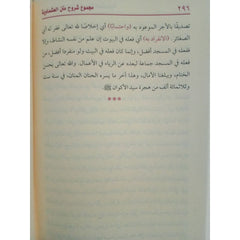 ٢٩٦
مجموع شروح متن العشماوية
تصديقًا بالأجر الموعود به (واحتسابًا) أي إخلاصًا لله تعالى غفر له أي
الصغائر. (الانفراد به) أي فعله في البيوت إن علم من نفسه النشاط، وإلا
ففعله في المسجد أفضل، وإنما كان فعله في البيت ولو منفردًا أفضل من
فعله في المسجد جماعة لبعده عن الرياء في الأعمال. والله تعالى يحسن
الختام، ويبلغنا الآمال، وهذا آخر ما يسره الحنان المنان، في
وثلاثمائة ألف من هجرة سيد الأكوان ﷺ.
***